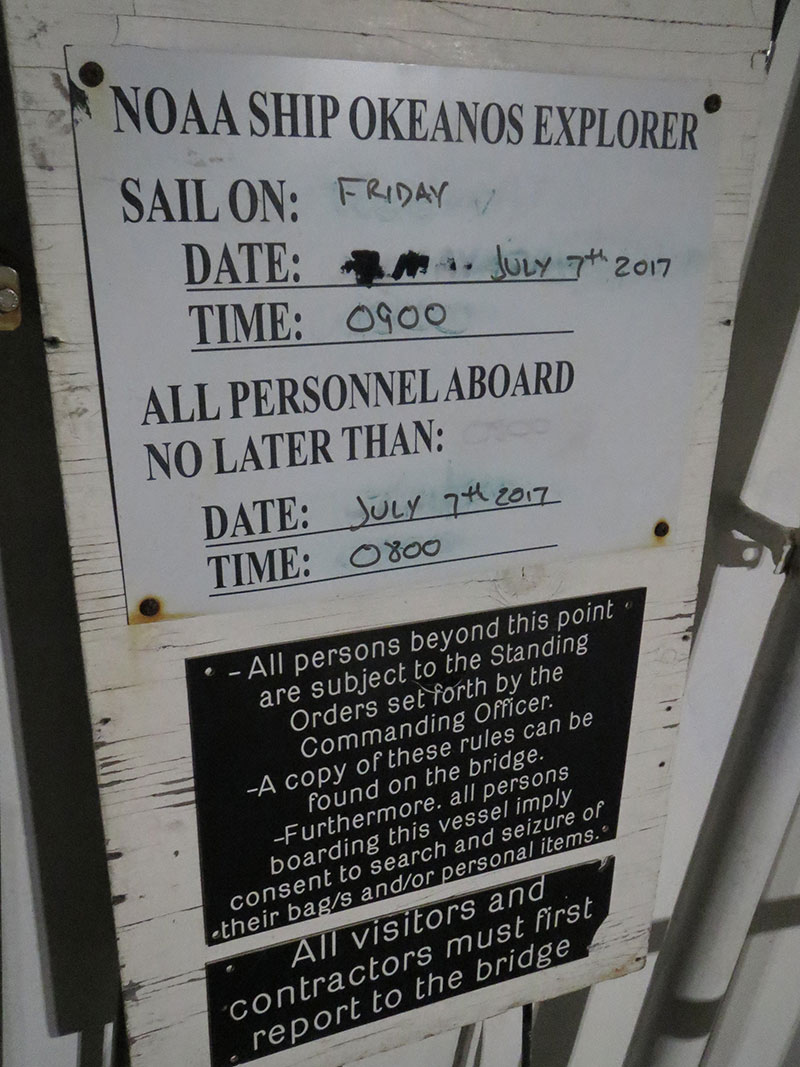 NOAA SHIP OKEANOS EXPLORER
SAIL ON: FRIDAY
DATE: JULY 7th 2017
TIME: 0900
ALL PERSONNEL ABOARD
NO LATER THAN:
DATE: JULY 7th 2017
TIME: 0800
- All persons beyond this point
are subject to the Standing
Orders set forth by the
Commanding Officer.
-A copy of these rules can be
found on the bridge.
-Furthermore. all persons
boarding this vessel imply
consent to search and seizure of
their bag/s and/or personal items.
All visitors and
contractors must first
report to the bridge